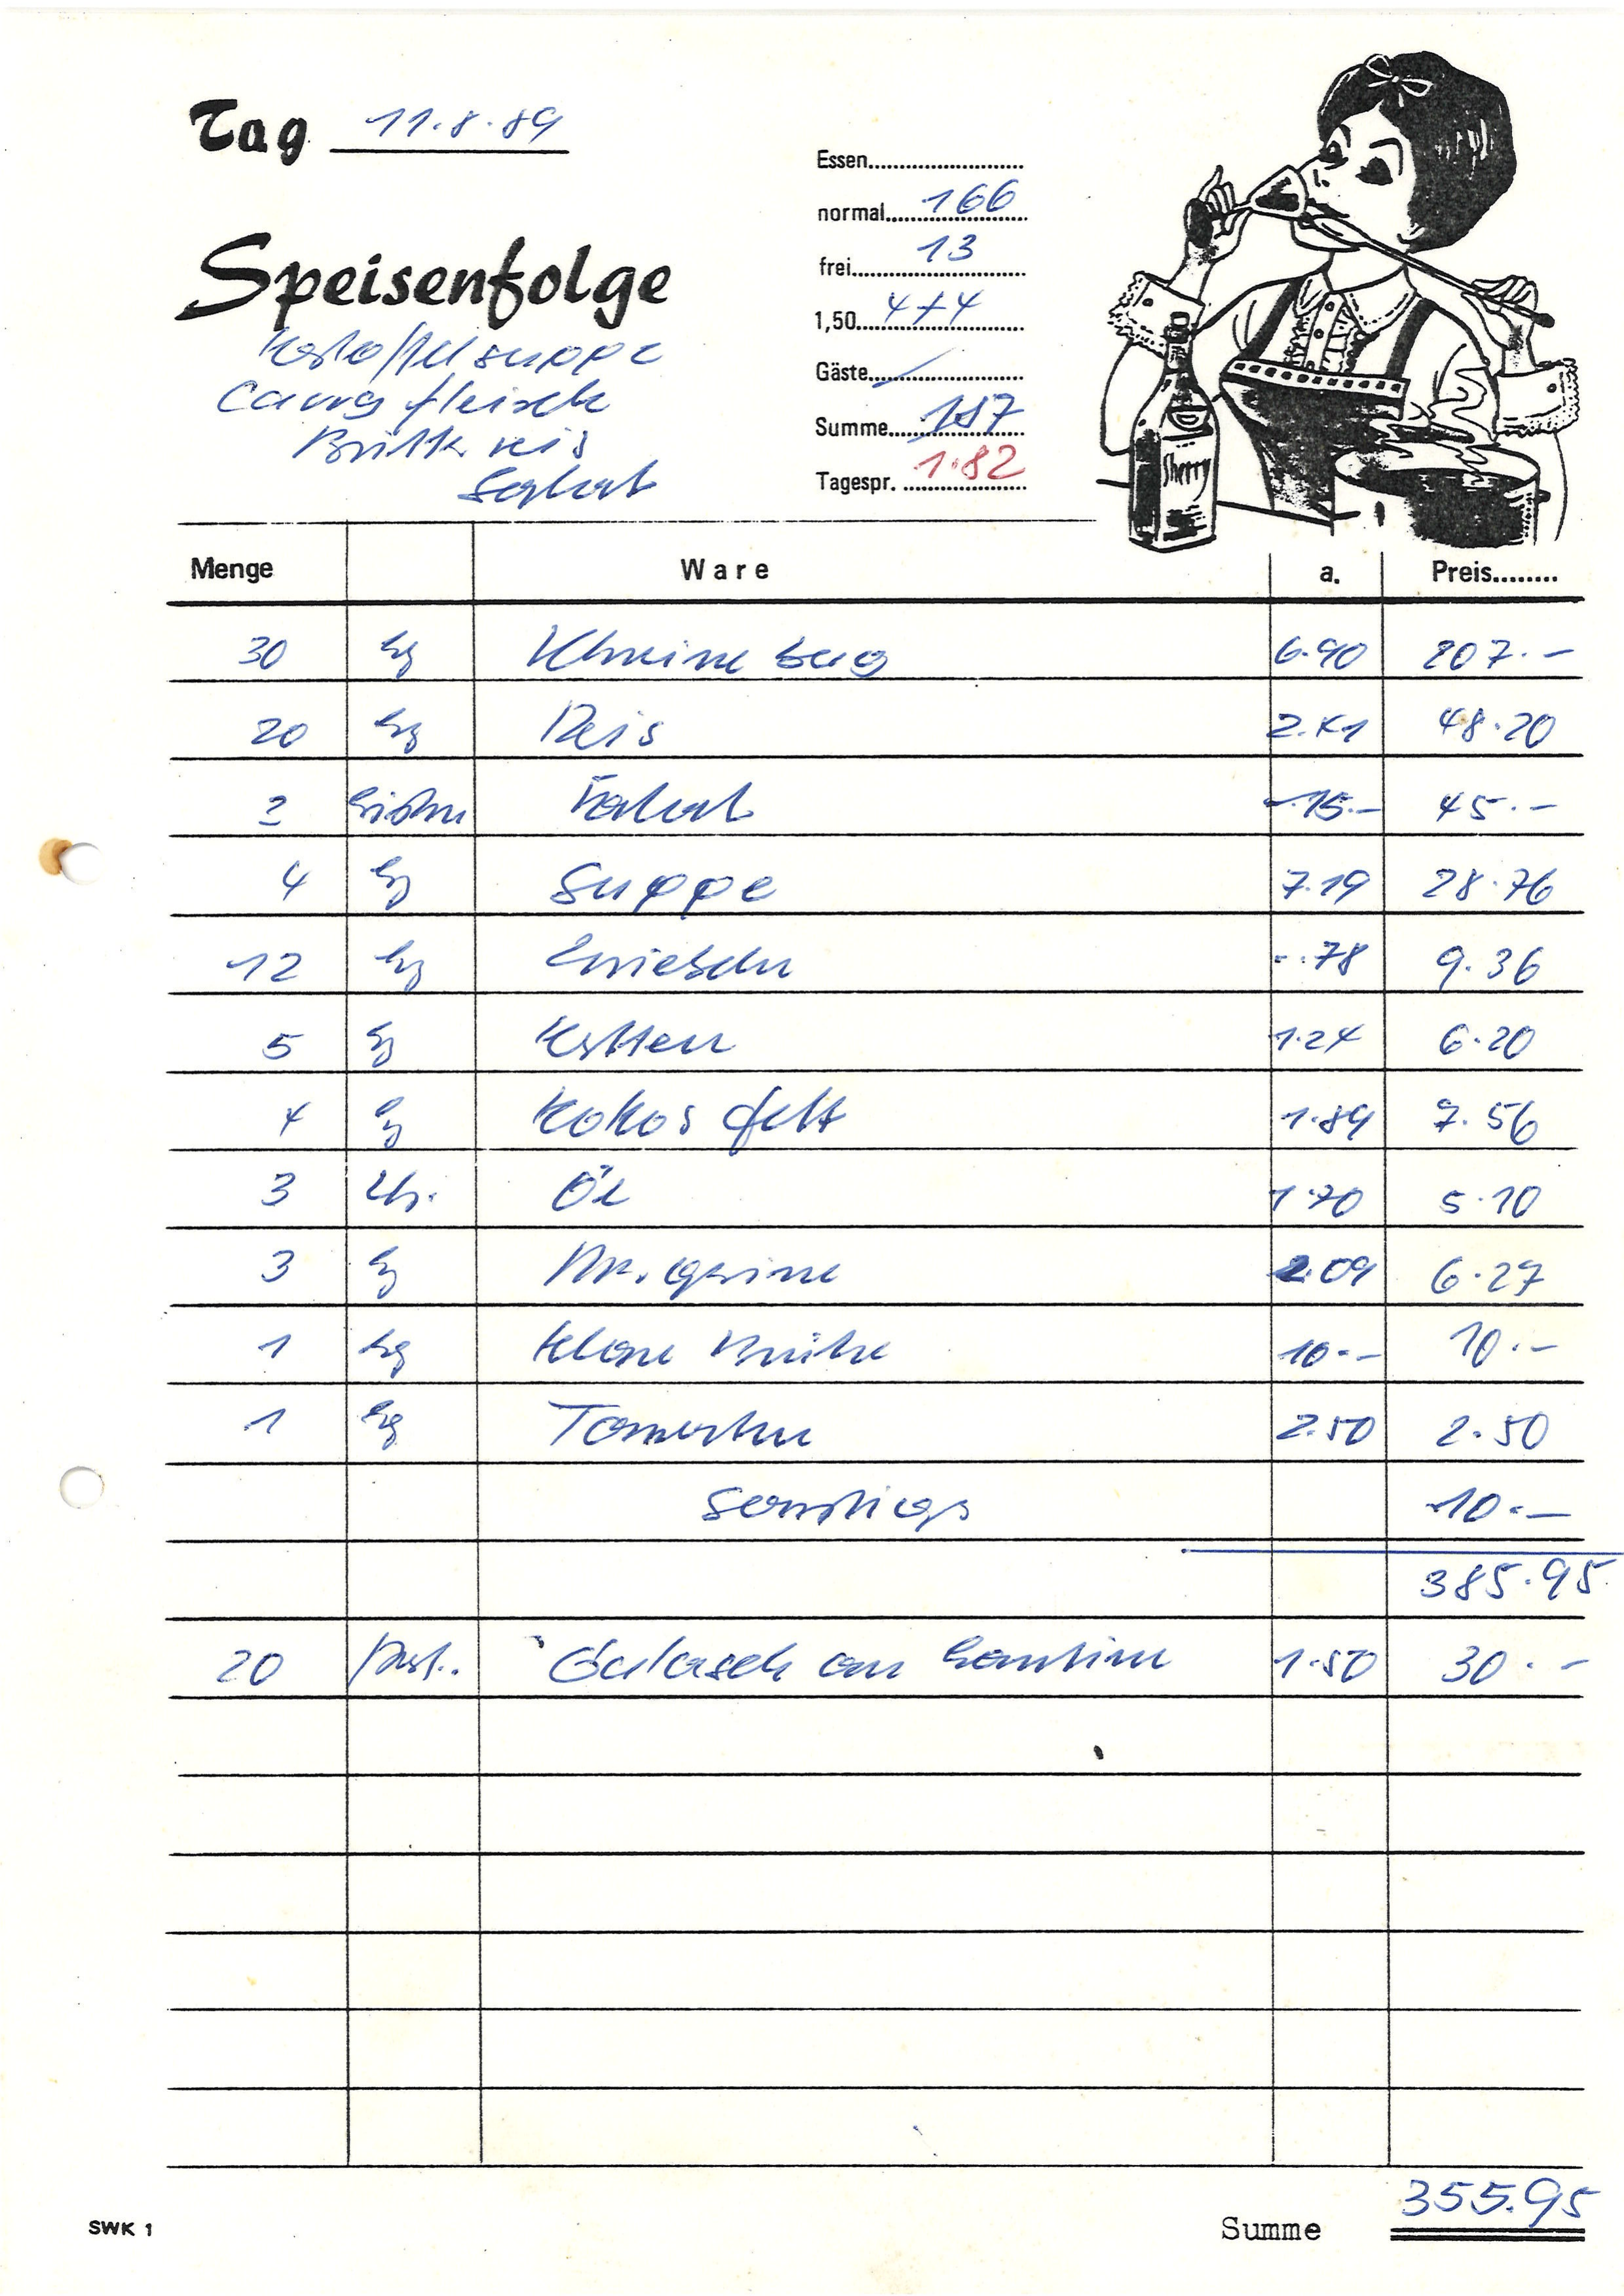 Tag 11.8.89
Speisenfolge
Kartoffelsuppe
Curryfleisch
Brühreis
Salat
Essen
normal 166
frei 13
1,50 4+4
Gäste /
Summe 187
Tagespr. 1.82
Sherry
Menge Ware a. Preis
30 kg 6.90 207.-
20 kg Reis 2.41 48.20
2 Kisten Salat 15.- 45.-
4 kg Suppe 7.19 28.76
12 kg Zwiebeln -.78 9.36
5 kg 1.24 6.20
4 kg Kokosfett 1.89 7.56
3 Ltr. Öl 1.70 5.10
3 kg Margarine 2.09 6.27
1 kg Klare Brühe 10.- 10.-
1 kg Tomaten 2.50 2.50
Sonstiges 10.-
385.95
20 Port. Gulasch an Kantine 1.50 30.-
355.95
SWK 1 Summe